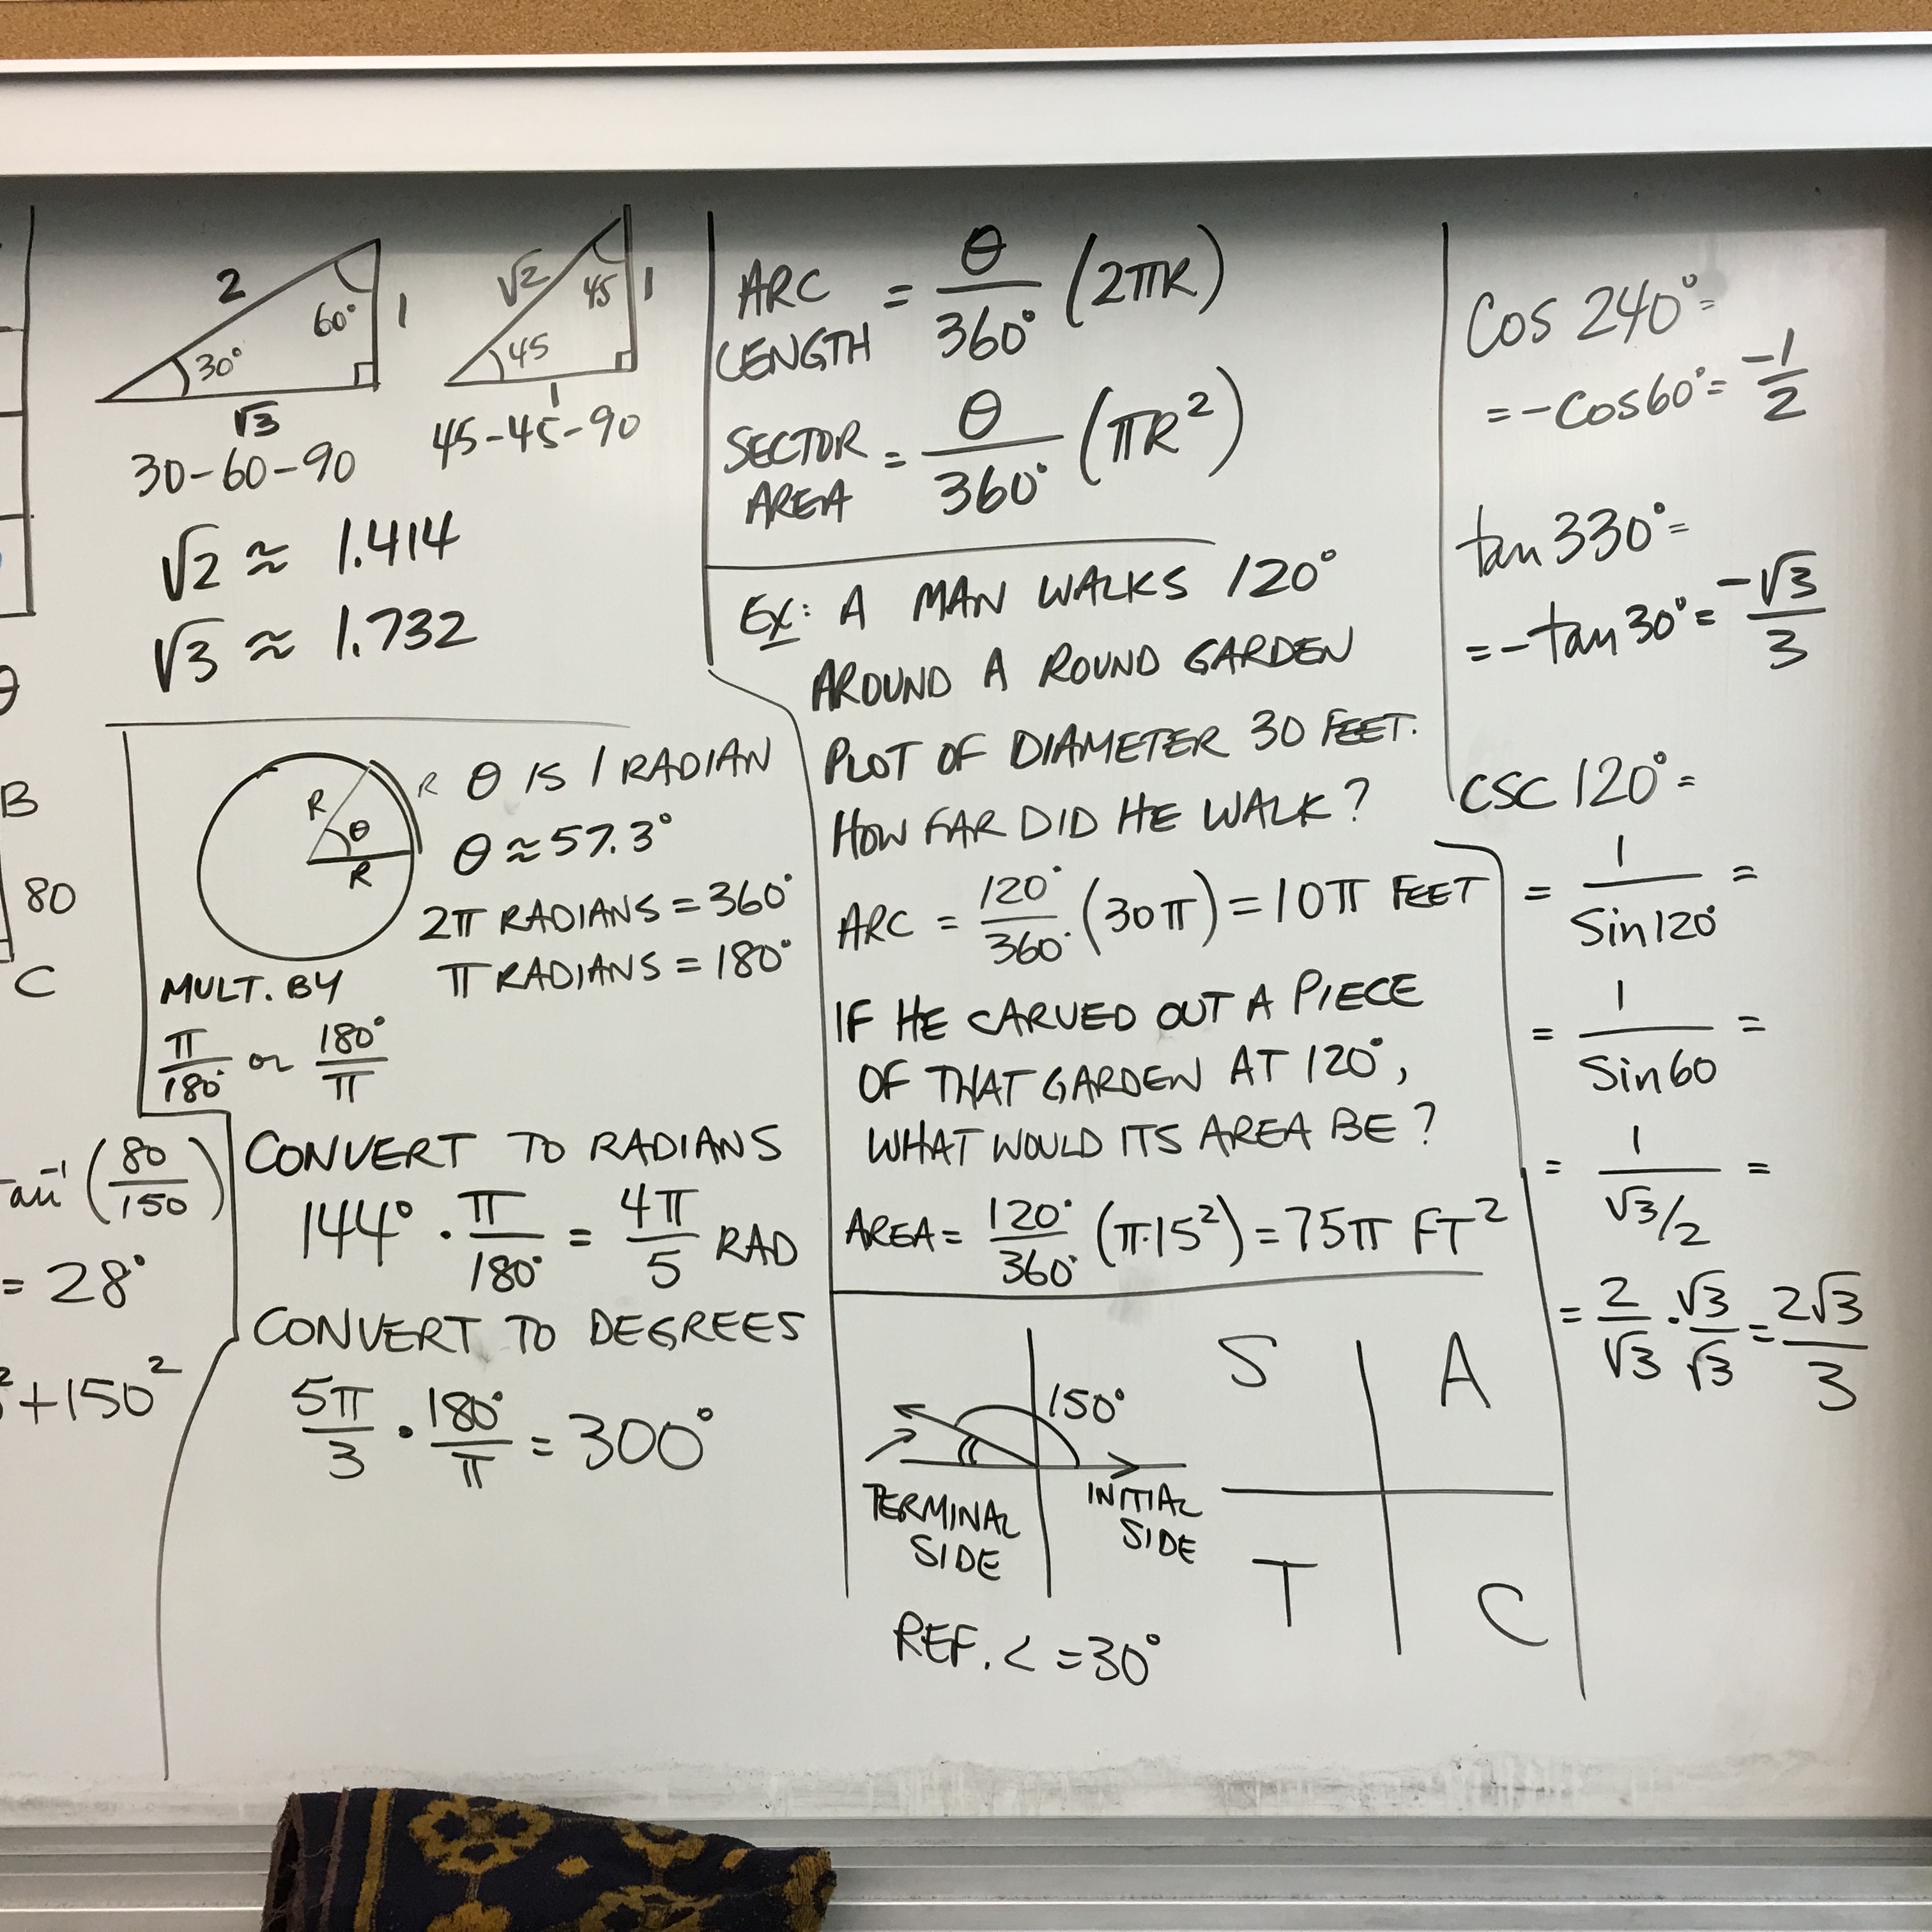 θ
B
80
C
tan⁻¹ (80/150)
= 28°
² + 150²
2
60°
1
30°
√3
30-60-90
√2
45
1
45
1
45-45-90
√2 ≈ 1.414
√3 ≈ 1.732
R
θ
R
R
θ IS 1 RADIAN
θ ≈ 57.3°
2π RADIANS = 360°
π RADIANS = 180°
MULT. BY
π/180° or 180°/π
CONVERT TO RADIANS
144° · π/180° = 4π/5 RAD
CONVERT TO DEGREES
5π/3 · 180°/π = 300°
ARC
LENGTH = θ/360° (2πR)
SECTOR
AREA = θ/360° (πR²)
EX: A MAN WALKS 120°
AROUND A ROUND GARDEN
PLOT OF DIAMETER 30 FEET.
HOW FAR DID HE WALK?
ARC = 120°/360° (30π) = 10π FEET
IF HE CARVED OUT A PIECE
OF THAT GARDEN AT 120°,
WHAT WOULD ITS AREA BE?
AREA = 120°/360° (π·15²) = 75π FT²
150°
TERMINAL
SIDE
INITIAL
SIDE
REF. < = 30°
S A
T C
Cos 240° =
= -Cos60° = -1/2
tan 330° =
= -tan 30° = -√3/3
CSC 120° =
= 1/Sin120° =
= 1/Sin60 =
= 1/√3/2 =
= 2/√3 · √3/√3 = 2√3/3